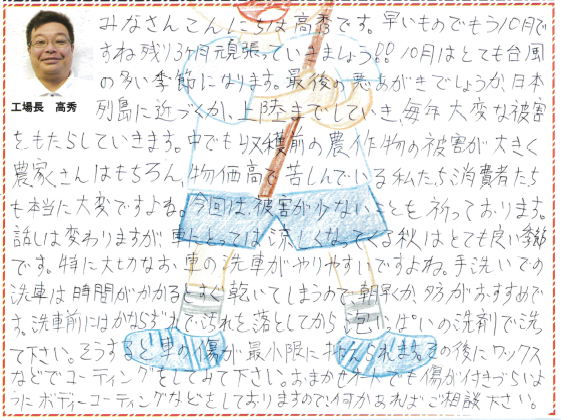 みなさんこんにちは高秀です。早いものでもう10月で
すね残り3ヶ月頑張っていきましょう!!10月はとても台風
の多い季節になります。最後の悪あがきでしょうか、日本
列島に近づくか、上陸までしていき、毎年大変な被害
工場長 高秀
をもたらしていきます。中でも収穫前の農作物の被害が大きく
農家さんはもちろん、物価高で苦しんでいる私たち消費者たち
も本当に大変ですよね。今回は、被害が少ないことを祈っております。
話しは変わりますが、車にとっては涼しくなってくる秋はとても良い季節
です。特に大切なお車の洗車がやりやすいですよね。手洗いでの
洗車は時間がかかるとすぐ乾いてしまうので、朝早くか、夕方がおすすめで
す。洗車前にはかならず水で汚れを落としてから泡いっぱいの洗剤で洗っ
て下さい。そうすると車の傷が最小限に抑えられます。その後にワックス
などでコーティングをしてみて下さい。おまかせ下さいでも傷が付きづらいよ
うにボディーコーティングなどもしておりますので、何かあればご相談下さい。